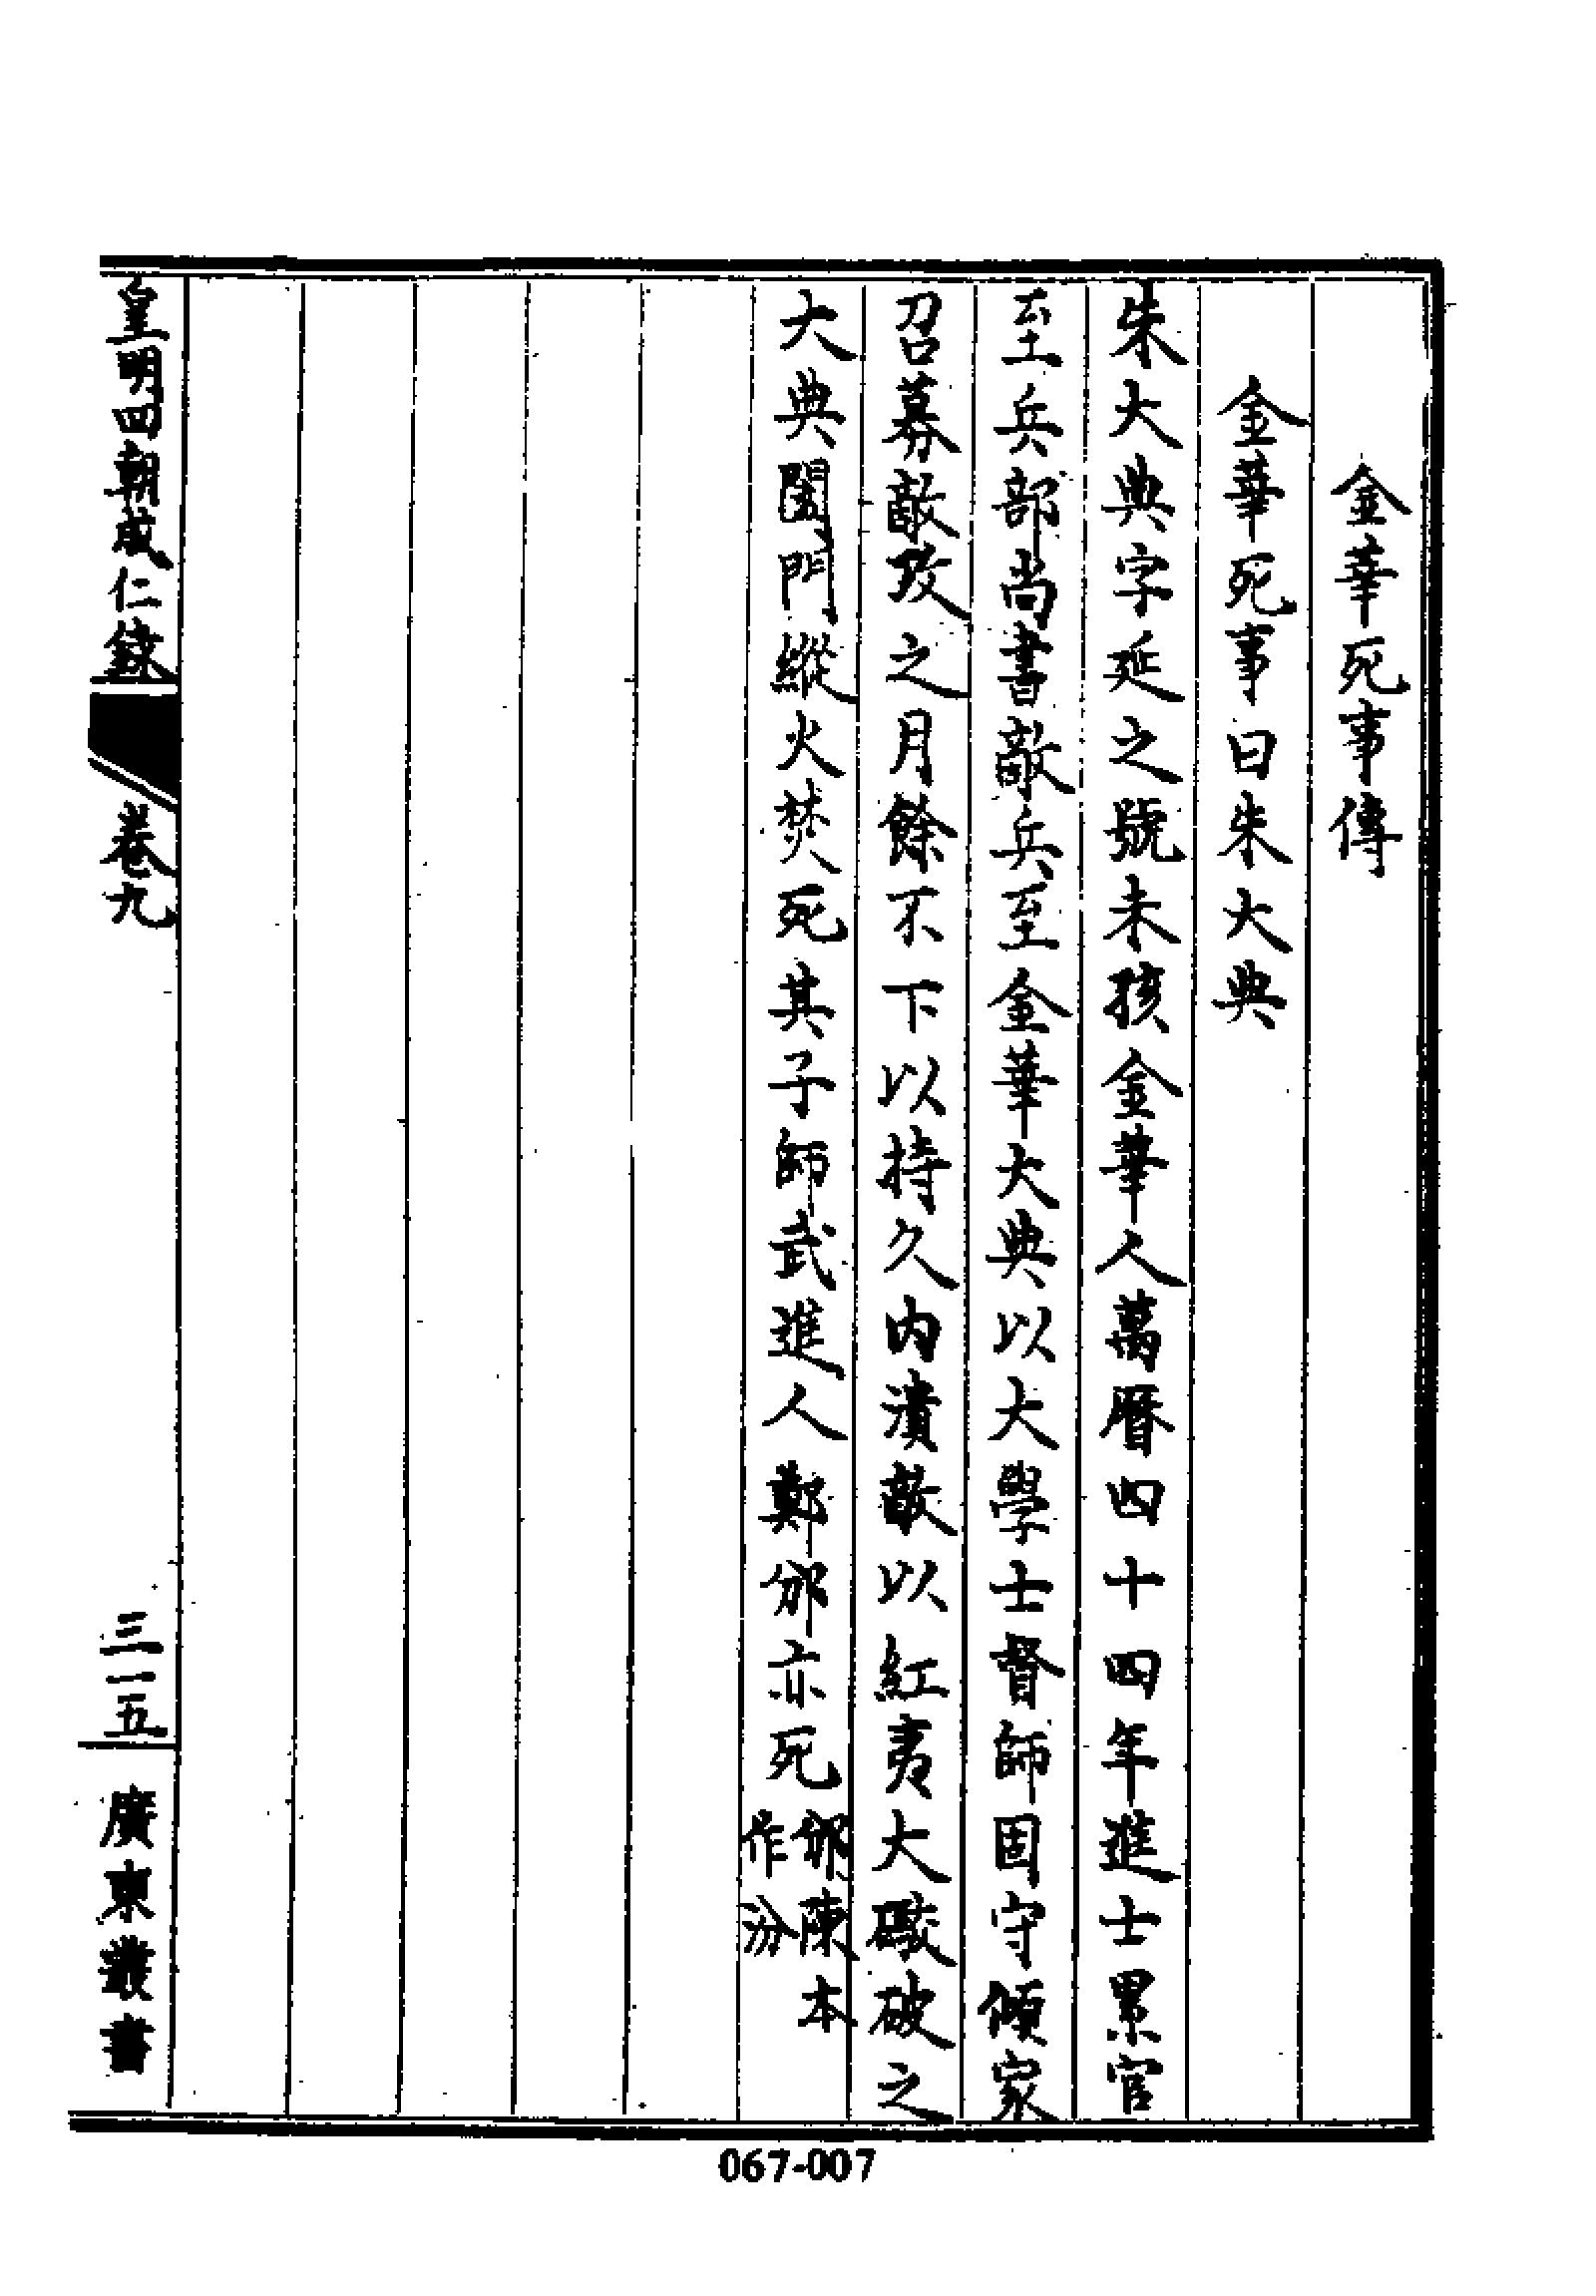 金華死事傳
金華死事曰朱大典
朱大典字延之號未孩金華人萬曆四十四年進士累官
至兵部尚書敵兵至金華大典以大學士督師固守傾家
召募敵攻之月餘不下以持久内潰敵以紅夷大礮破之
大典闔門縱火焚死其子師武進人鄭邠亦死邠陳本作汾
皇明四朝成仁錄 卷九 三一五 廣東叢書
067-007